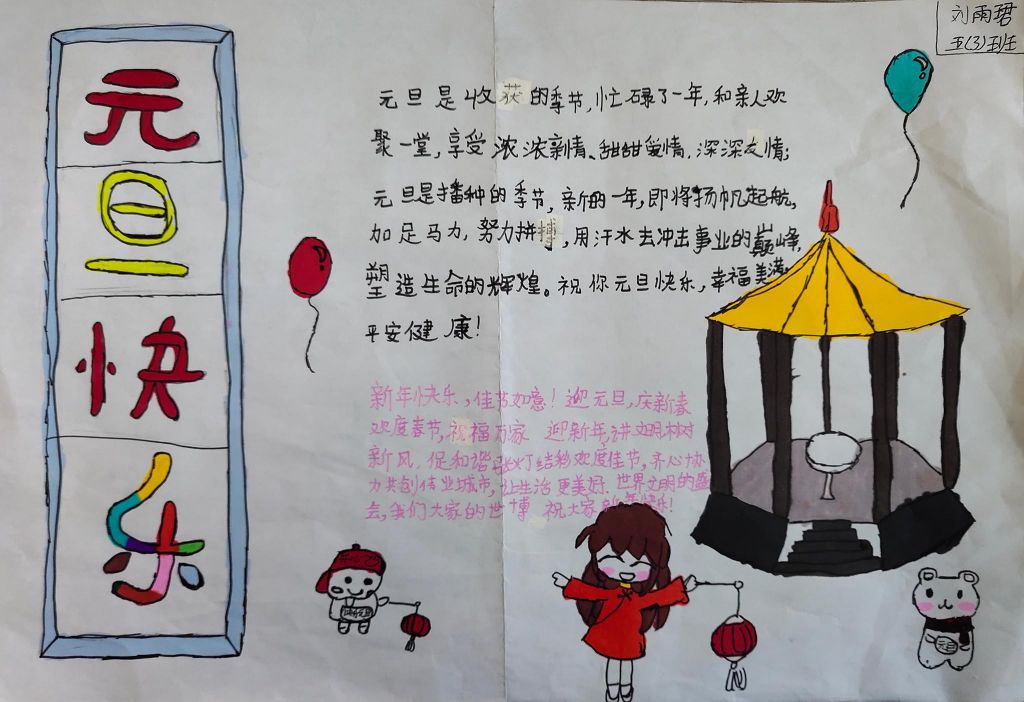 刘雨珺
五(3)班
元
旦
快
乐
元旦是收获的季节,忙碌了一年,和亲人欢
聚一堂,享受浓浓亲情、甜甜爱情,深深友情;
元旦是播种的季节,新的一年,即将扬帆起航,
加足马力,努力拼搏,用汗水去冲击事业的巅峰,
塑造生命的辉煌。祝你元旦快乐,幸福美满,
平安健康!
新年快乐,佳节如意!迎元旦,庆新春
欢度春节,祝福万家 迎新年,讲文明树
新风,促和谐 张灯结彩欢度佳节,齐心协
力共创伟业城市,让生活更美好 世界文明的盛
会,我们大家的世博 祝大家新年快乐!
元旦